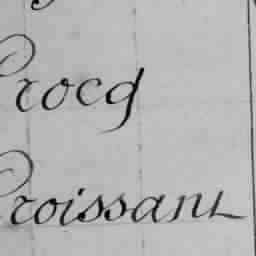 Crocq
Croissant